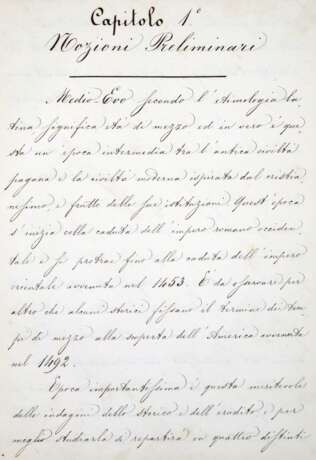 Capitolo 1°
Nozioni Preliminari
Medio-Evo secondo l'etimologia la
tina significa età di mezzo ed in vero è que
sta un'epoca intermedia tra l'antica civiltà
pagana e la civiltà moderna ispirata dal cristia
nesimo, e frutto delle sue istituzioni. Quest'epoca
s'inizia colla caduta dell'impero romano occiden
tale e si protrae fino alla caduta dell'impero
orientale avvenuta nel 1453. È da osservare per
altro che alcuni storici fissano il termine di tem
pi di mezzo alla scoperta dell'America avvenuta
nel 1492.
Epoca importantissima è questa meritevole
delle indagini dello storico e dell'erudito e per
meglio studiarla si repartirà in quattro distinti